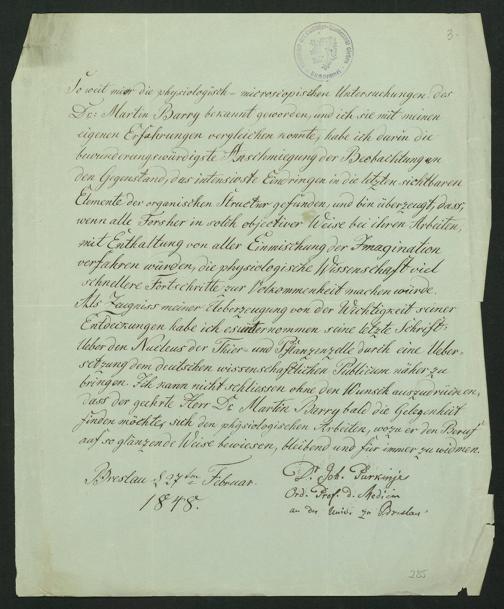 3.
So weit mir die physiologisch-microscopischen Untersuchungen des
Dr: Martin Barry bekannt geworden, und ich sie mit meinen
eigenen Erfahrungen vergleichen konnte, habe ich darin die
bewunderungswürdigste Anschmiegung der Beobachtung an
den Gegenstand, das intensivste Eindringen in die letzten sichtbaren
Elemente der organischen Structur gefunden, und bin überzeugt, dass,
wenn alle Forsher in solch objectiver Weise bei ihren Arbeiten,
mit Enthaltung von aller Einmischung der Imagination
verfahren würden, die physiologische Wissenschaft viel
schnellere Fortschritte zur Volkommenheit machen würde.
Als Zeugniss meiner Ueberzeugung von der Wichtigkeit seiner
Entdeckungen habe ich es unternommen seine letzte Schrift:
Ueber den Nucleus der Thier- und Pflanzenzelle durch eine Ueber-
setzung dem deutschen wissenschaftlichen Publicum näher zu
bringen. Ich kann nicht schliessen ohne den Wunsch auszudrücken,
dass der geehrte Herr Dr. Martin Barry bald die Gelegenheit
finden möchte, sich den physiologischen Arbeiten, wozu er den Beruf
auf so glänzende Weise bewiesen, bleibend und für immer zu widmen.
Breslau d. 27ten Februar.
1848.
Dr. Joh. Purkinje
Ord. Prof. d. Medicin
an der Univ. zu Breslau
285